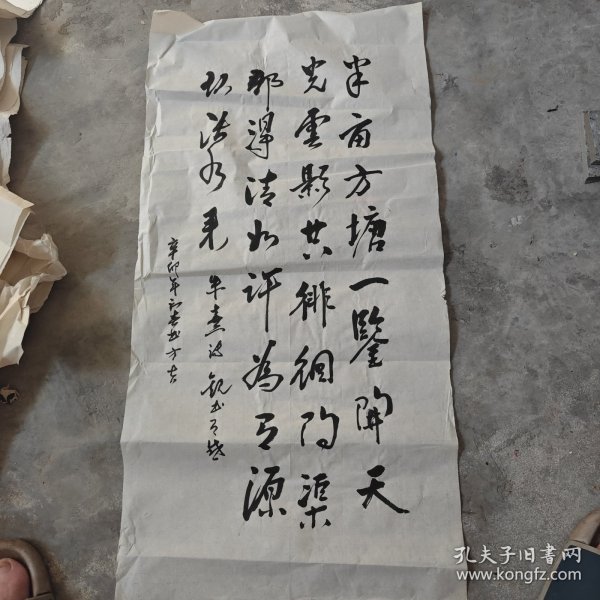 半亩方塘一鑒開天
光雲影共徘徊问渠
那得清如许為有源
頭活水來 朱熹诗 觀书有感
辛卯年初春书
孔夫子旧书网
www.kongfz.com